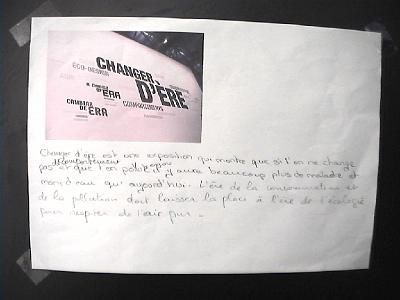 ECO-DESIGN
CHANGER
D'ÈRE
CAMBIAR DE
ERA
COMPORTEMENTS
Changer d'ère est une exposition qui montre que si l'on ne change
pas de comportement
et que l'on pollue, il y aura beaucoup plus de maladie et
moins d'eau qu'aujourd'hui. L'ère de la consommation et
de la pollution doit laisser la place à l'ère de l'écologie
pour respirer de l'air pur.